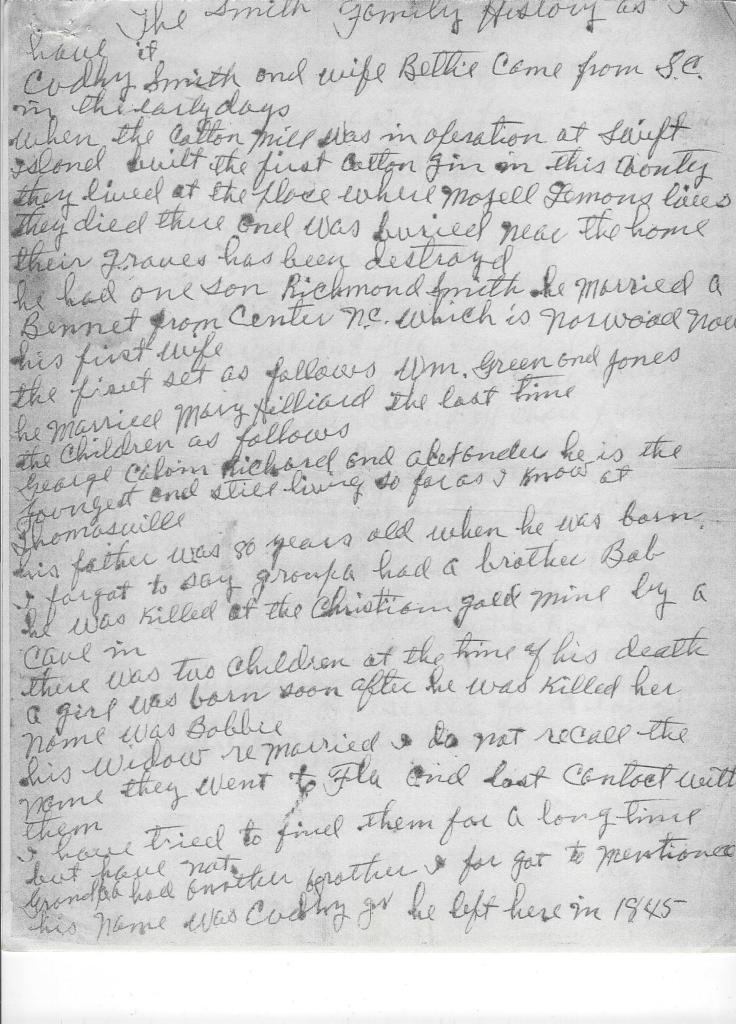 The Smith Family History as I
have it
Cudhy Smith and wife Bettie Came from S.C.
in the early days
When the Cotton Mill was in operation at Swift
Island built the first Cotton Gin in this County
they lived at the place where Mozell Lemons lives
they died there and was buried near the home
their Graves has been destroyd
he had one son Richmond Smith he married a
Bennet from Center N.C. which is Norwood Now
his first wife
the first set as follows Wm. Green and Jones
he Married Mary Hilliard the last time
the Children as follows
George Calvin Richard and Alexander he is the
Youngest and still living so far as I know at
Thomasville
his father was 80 years old when he was born.
I forgot to say Gronpa had a brother Bob
he was killed at the Christian gold Mine by a
Cave in
there was two Children at the time of his death
a girl was born soon after he was killed her
Name was Bobbie
his Widow remarried I do not recall the
Name they went to Fla and lost Contact with
them
I have tried to find them for a long-time
but have not
Grandpa had another brother I for got to mentioned
his Name was Cudhy Jr he left here in 1845